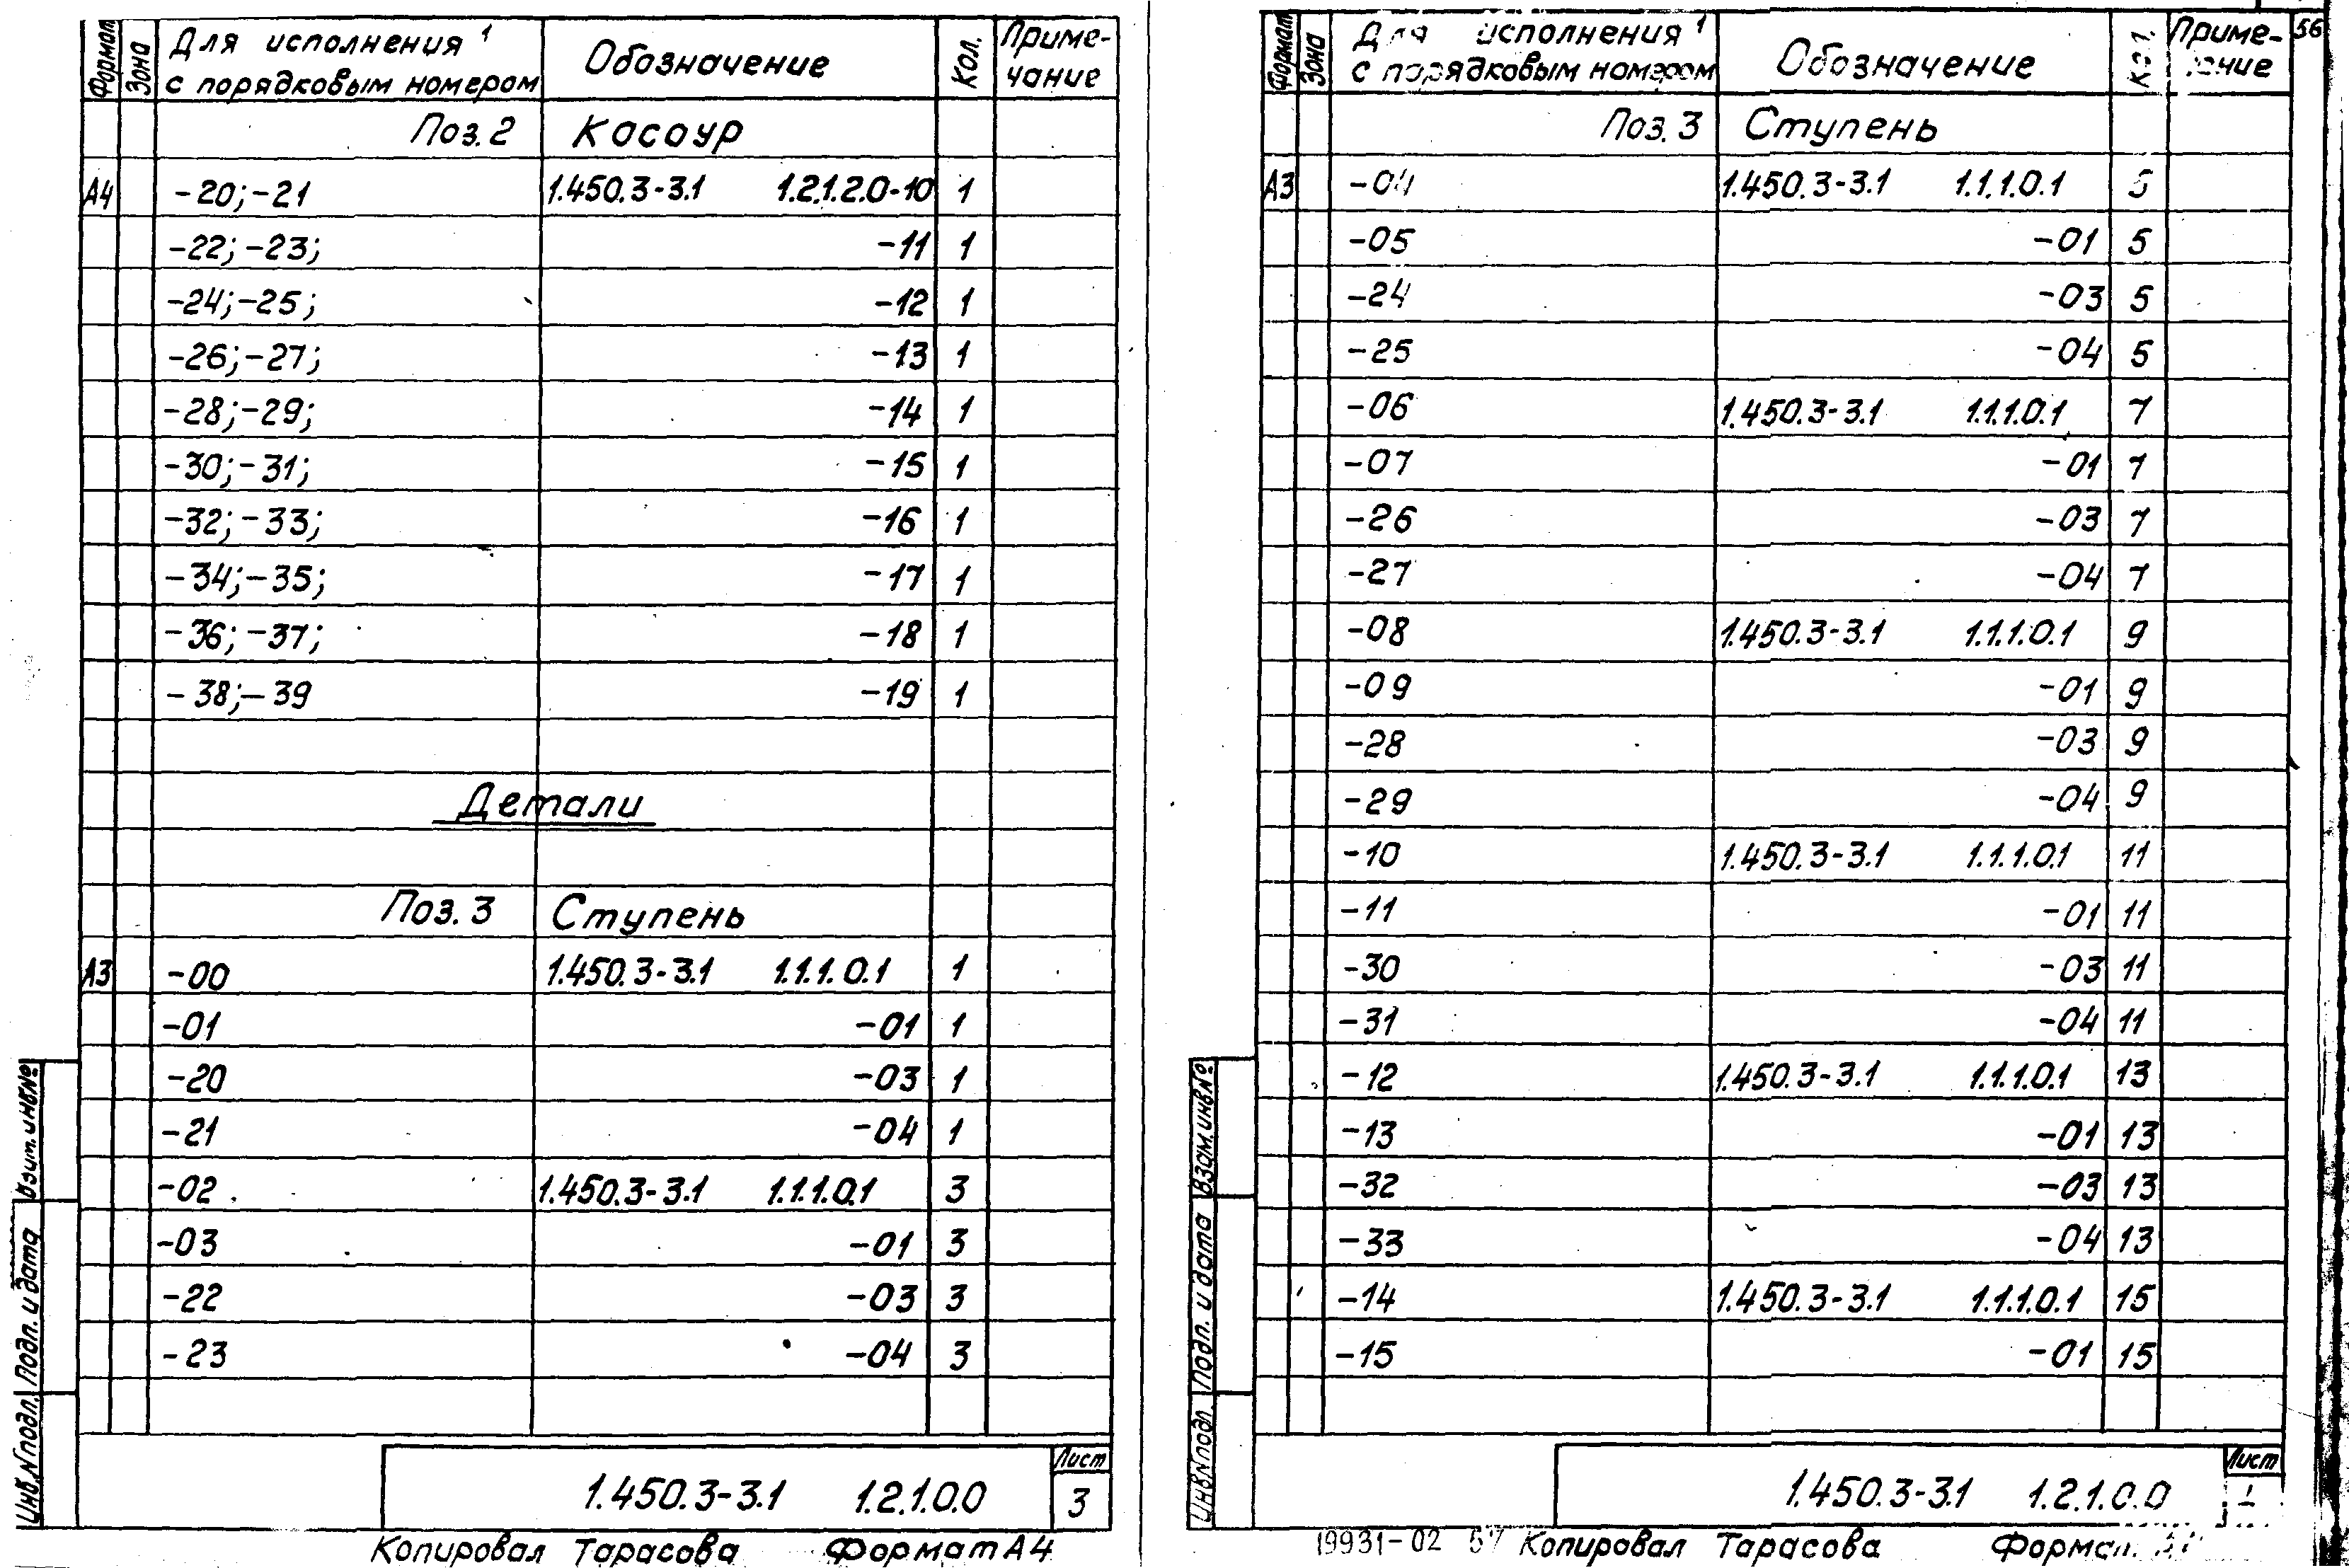 Формат Зона Для исполнения¹ с порядковым номером Обозначение Кол. Приме-чание
Поз. 2 Косоур
А4 -20; -21 1.450.3-3.1 1.2.1.2.0-10 1
-22; -23; -11 1
-24; -25; -12 1
-26; -27; -13 1
-28; -29; -14 1
-30; -31; -15 1
-32; -33; -16 1
-34; -35; -17 1
-36; -37; -18 1
-38; -39 -19 1
Детали
Поз. 3 Ступень
А3 -00 1.450.3-3.1 1.1.1.0.1 1
-01 -01 1
-20 -03 1
-21 -04 1
-02 1.450.3-3.1 1.1.1.0.1 3
-03 -01 3
-22 -03 3
-23 -04 3
Инв.№подл. Подп. и дата Взам.инв№
1.450.3-3.1 1.2.1.0.0 Лист 3
Копировал Тарасова Формат А4
56
Формат Зона Для исполнения¹ с порядковым номером Обозначение Кол. Приме-чание
Поз. 3 Ступень
А3 -04 1.450.3-3.1 1.1.1.0.1 5
-05 -01 5
-24 -03 5
-25 -04 5
-06 1.450.3-3.1 1.1.1.0.1 7
-07 -01 7
-26 -03 7
-27 -04 7
-08 1.450.3-3.1 1.1.1.0.1 9
-09 -01 9
-28 -03 9
-29 -04 9
-10 1.450.3-3.1 1.1.1.0.1 11
-11 -01 11
-30 -03 11
-31 -04 11
-12 1.450.3-3.1 1.1.1.0.1 13
-13 -01 13
-32 -03 13
-33 -04 13
-14 1.450.3-3.1 1.1.1.0.1 15
-15 -01 15
Инв.№подл. Подп. и дата Взам.инв№
1.450.3-3.1 1.2.1.0.0 Лист
19931-02 57 Копировал Тарасова Формат